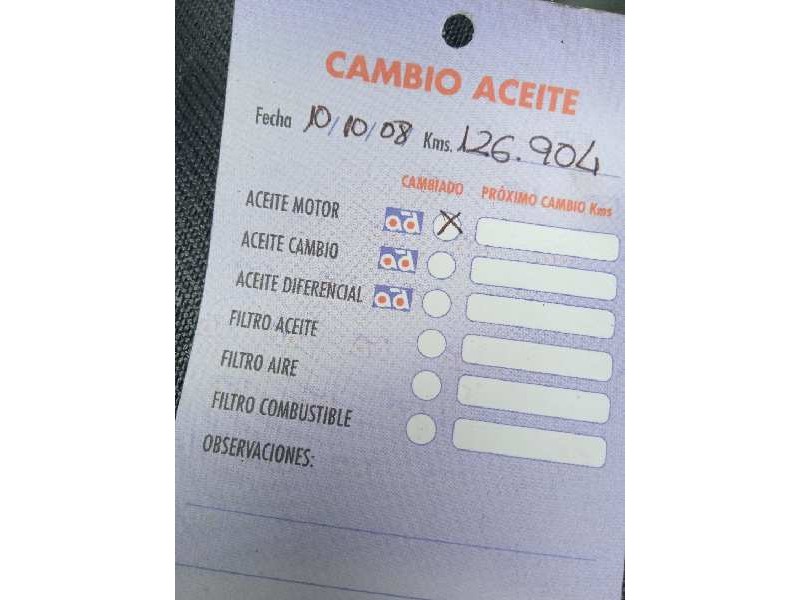 CAMBIO ACEITE
Fecha 10/10/08 Kms. 126.904
CAMBIADO PRÓXIMO CAMBIO Kms
ACEITE MOTOR ad X
ACEITE CAMBIO ad
ACEITE DIFERENCIAL ad
FILTRO ACEITE
FILTRO AIRE
FILTRO COMBUSTIBLE
OBSERVACIONES: